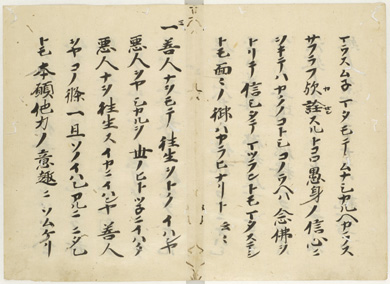 マフスムネマタモテムナシカルヘカラス
サフラフ歟詮スルトコロ愚身ノ信心ニ
ヲキテハカクノコトシコノウヘハ念佛ヲ
トリテ信シタテマツラントモマタステン
トモ面々ノ御ハカラヒナリト云々
一善人ナヲモテ往生ヲトクイハンヤ
悪人ヲヤシカルヲ世ノヒトツネニイハク
悪人ナヲ往生スイカニイハンヤ善人
ヲヤコノ條一旦ソノイハレアルニニタレ
トモ本願他力ノ意趣ニソムケリ